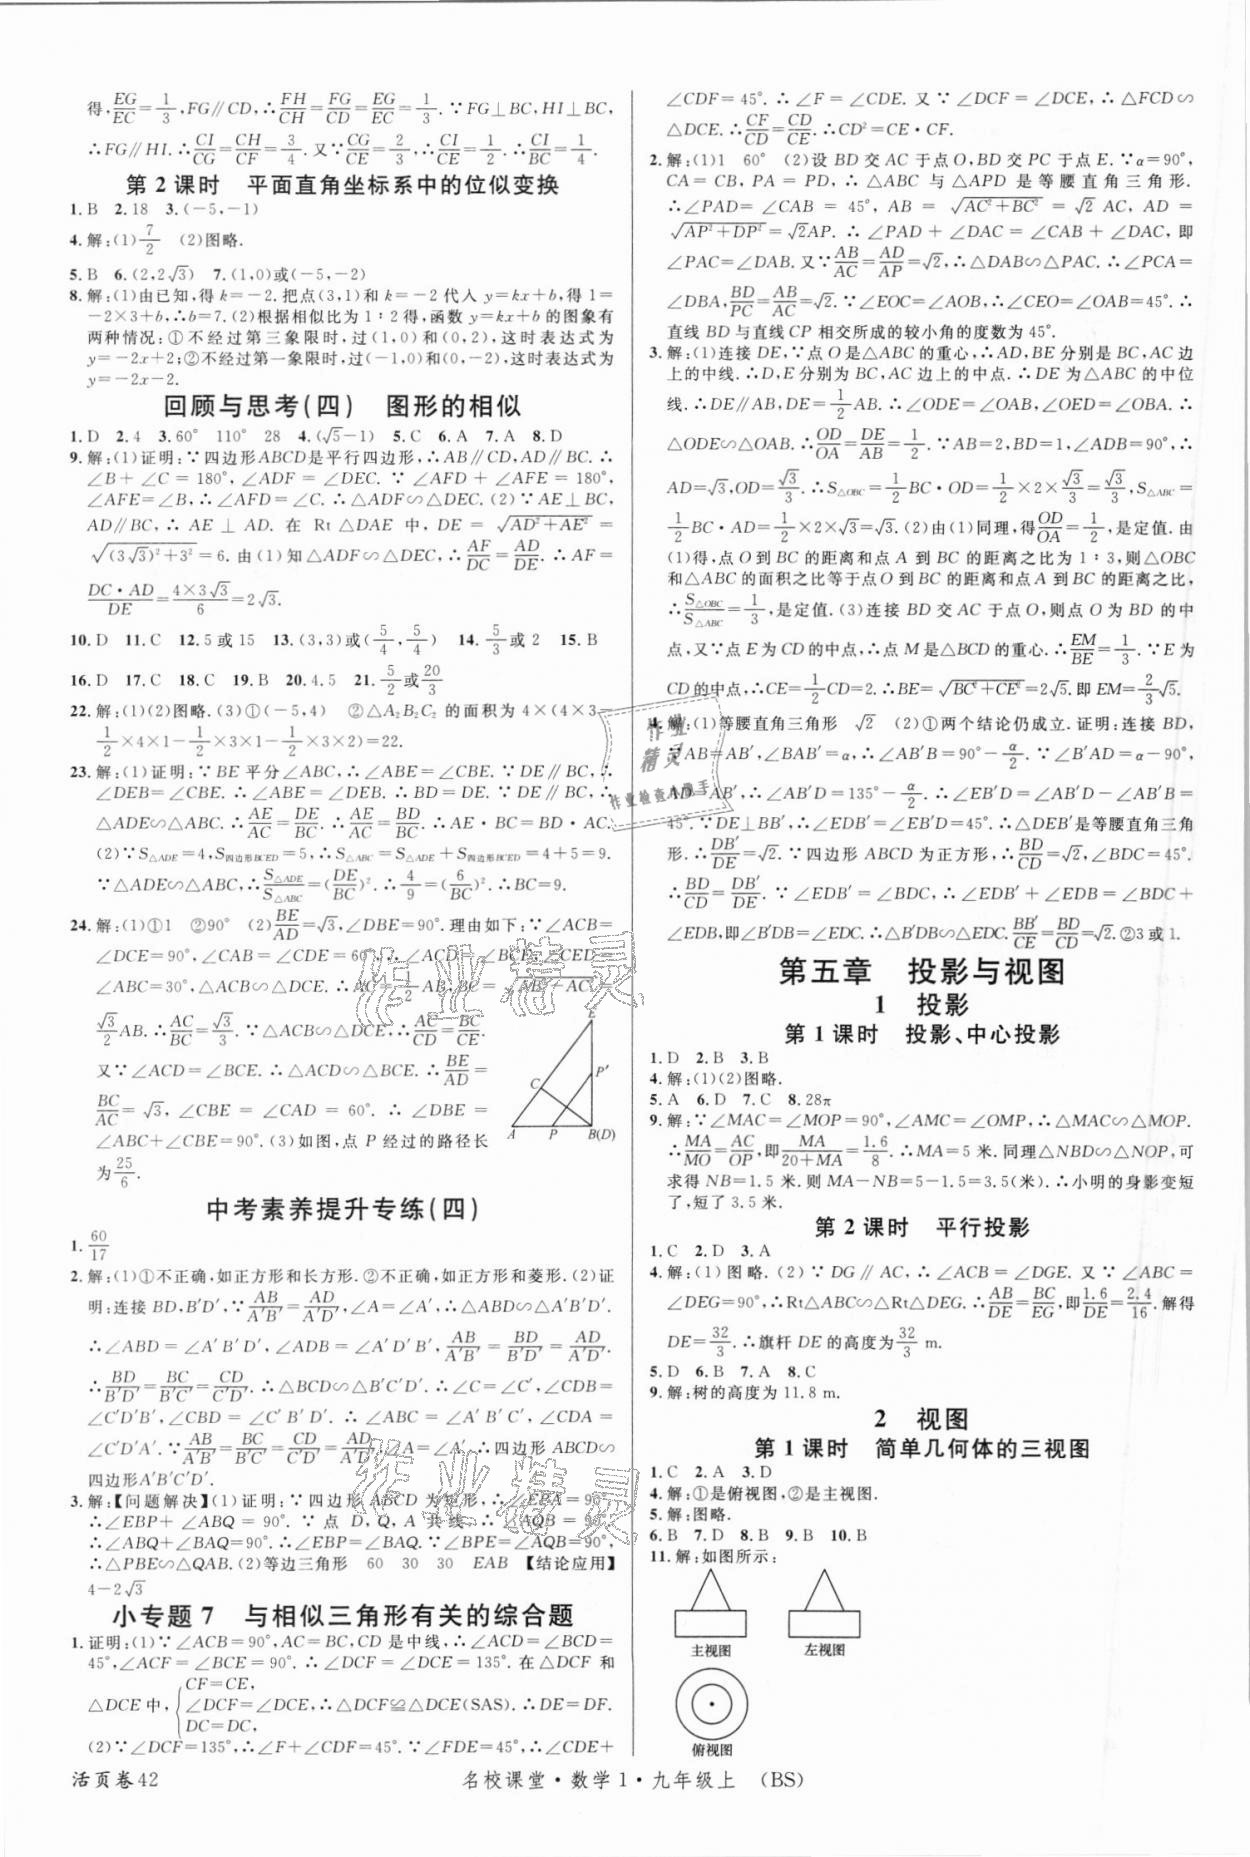 得,EG/EC=1/3,FG∥CD,∴FH/CH=FG/CD=EG/EC=1/3.∵FG⊥BC,HI⊥BC,
∴FG∥HI.∴CI/CG=CH/CF=3/4.又∵CG/CE=2/3,∴CI/CE=1/2.∴CI/BC=1/4.
第2课时 平面直角坐标系中的位似变换
1.B 2.18 3.(-5,-1)
4.解:(1)7/2 (2)图略.
5.B 6.(2,2√3) 7.(1,0)或(-5,-2)
8.解:(1)由已知,得k=-2.把点(3,1)和k=-2代入y=kx+b,得1=
-2×3+b,∴b=7.(2)根据相似比为1∶2得,函数y=kx+b的图象有
两种情况:①不经过第三象限时,过(1,0)和(0,2),这时表达式为
y=-2x+2;②不经过第一象限时,过(-1,0)和(0,-2),这时表达式为
y=-2x-2.
回顾与思考(四) 图形的相似
1.D 2.4 3.60° 110° 28 4.(√5-1) 5.C 6.A 7.A 8.D
9.解:(1)证明:∵四边形ABCD是平行四边形,∴AB∥CD,AD∥BC.∴
∠B+∠C=180°,∠ADF=∠DEC.∵∠AFD+∠AFE=180°,
∠AFE=∠B,∴∠AFD=∠C.∴△ADF∽△DEC.(2)∵AE⊥BC,
AD∥BC,∴AE⊥AD.在Rt△DAE中,DE=√(AD²+AE²)=
√((3√3)²+3²)=6.由(1)知△ADF∽△DEC,∴AF/DC=AD/DE.∴AF=
DC·AD/DE=4×3√3/6=2√3.
10.D 11.C 12.5或15 13.(3,3)或(5/4,5/4) 14.5/3或2 15.B
16.D 17.C 18.C 19.B 20.4.5 21.5/2或20/3
22.解:(1)(2)图略.(3)①(-5,4) ②△A₂B₂C₂的面积为4×(4×3-
1/2×4×1-1/2×3×1-1/2×3×2)=22.
23.解:(1)证明:∵BE平分∠ABC,∴∠ABE=∠CBE.∵DE∥BC,∴
∠DEB=∠CBE.∴∠ABE=∠DEB.∴BD=DE.∵DE∥BC,∴
△ADE∽△ABC.∴AE/AC=DE/BC.∴AE/AC=BD/BC.∴AE·BC=BD·AC.
(2)∵S△ADE=4,S四边形BCED=5,∴S△ABC=S△ADE+S四边形BCED=4+5=9.
∵△ADE∽△ABC,∴S△ADE/S△ABC=(DE/BC)².∴4/9=(6/BC)².∴BC=9.
24.解:(1)①1 ②90° (2)BE/AD=√3,∠DBE=90°.理由如下:∵∠ACB=
∠DCE=90°,∠CAB=∠CDE=60°,∴∠ACD=∠BCE,∠CED=
∠ABC=30°,△ACB∽△DCE.∴AC=1/2AB,BC=√(AB²-AC²)=
√3/2AB.∴AC/BC=√3/3.∵△ACB∽△DCE,∴AC/CD=BC/CE.
又∵∠ACD=∠BCE.∴△ACD∽△BCE.∴BE/AD=
BC/AC=√3,∠CBE=∠CAD=60°.∴∠DBE=
∠ABC+∠CBE=90°.(3)如图,点P经过的路径长
为25/6.
E
C
P′
A P B(D)
中考素养提升专练(四)
1.60/17
2.解:(1)①不正确,如正方形和长方形.②不正确,如正方形和菱形.(2)证
明:连接BD,B′D′,∵AB/A′B′=AD/A′D′,∠A=∠A′,∴△ABD∽△A′B′D′.
∴∠ABD=∠A′B′D′,∠ADB=∠A′D′B′,AB/A′B′=BD/B′D′=AD/A′D′.
∴BD/B′D′=BC/B′C′=CD/C′D′.∴△BCD∽△B′C′D′.∴∠C=∠C′,∠CDB=
∠C′D′B′,∠CBD=∠C′B′D′.∴∠ABC=∠A′B′C′,∠CDA=
∠C′D′A′.又∵AB/A′B′=BC/B′C′=CD/C′D′=AD/A′D′,∠A=∠A′,∴四边形ABCD∽
四边形A′B′C′D′.
3.解:【问题解决】(1)证明:∵四边形ABCD为矩形,∴∠EBA=90°.
∴∠EBP+∠ABQ=90°.∵点D,Q,A共线,∴∠AQB=90°.
∴∠ABQ+∠BAQ=90°.∴∠EBP=∠BAQ.∵∠BPE=∠AQB=90°,
∴△PBE∽△QAB.(2)等边三角形 60 30 30 EAB 【结论应用】
4-2√3
小专题7 与相似三角形有关的综合题
1.证明:(1)∵∠ACB=90°,AC=BC,CD是中线,∴∠ACD=∠BCD=
45°,∠ACF=∠BCE=90°.∴∠DCF=∠DCE=135°.在△DCF和
△DCE中,{CF=CE,
∠DCF=∠DCE,∴△DCF≌△DCE(SAS).∴DE=DF.
DC=DC,
(2)∵∠DCF=135°,∴∠F+∠CDF=45°.∵∠FDE=45°,∴∠CDE+
∠CDF=45°.∴∠F=∠CDE.又∵∠DCF=∠DCE,∴△FCD∽
△DCE.∴CF/CD=CD/CE.∴CD²=CE·CF.
2.解:(1)1 60° (2)设BD交AC于点O,BD交PC于点E.∵α=90°,
CA=CB,PA=PD,∴△ABC与△APD是等腰直角三角形.
∴∠PAD=∠CAB=45°,AB=√(AC²+BC²)=√2AC,AD=
√(AP²+DP²)=√2AP.∴∠PAD+∠DAC=∠CAB+∠DAC,即
∠PAC=∠DAB.又∵AB/AC=AD/AP=√2,∴△DAB∽△PAC.∴∠PCA=
∠DBA,BD/PC=AB/AC=√2.∵∠EOC=∠AOB,∴∠CEO=∠OAB=45°.∴
直线BD与直线CP相交所成的较小角的度数为45°.
3.解:(1)连接DE,∵点O是△ABC的重心,∴AD,BE分别是BC,AC边
上的中线.∴D,E分别为BC,AC边上的中点.∴DE为△ABC的中位
线.∴DE∥AB,DE=1/2AB.∴∠ODE=∠OAB,∠OED=∠OBA.∴
△ODE∽△OAB.∴OD/OA=DE/AB=1/2.∵AB=2,BD=1,∠ADB=90°,∴
AD=√3,OD=√3/3.∴S△OBC=1/2BC·OD=1/2×2×√3/3=√3/3,S△ABC=
1/2BC·AD=1/2×2×√3=√3.(2)由(1)同理,得OD/OA=1/2,是定值.由
(1)得,点O到BC的距离和点A到BC的距离之比为1∶3,则△OBC
和△ABC的面积之比等于点O到BC的距离和点A到BC的距离之比.
∴S△OBC/S△ABC=1/3,是定值.(3)连接BD交AC于点O,则点O为BD的中
点,又∵点E为CD的中点,∴点M是△BCD的重心.∴EM/BE=1/3.∵E为
CD的中点,∴CE=1/2CD=2.∴BE=√(BC²+CE²)=2√5.即EM=2/3√5.
4.解:(1)等腰直角三角形 √2 (2)①两个结论仍成立.证明:连接BD,
∵AB=AB′,∠BAB′=α,∴∠AB′B=90°-α/2.∵∠B′AD=α-90°,
AD=AB′,∴∠AB′D=135°-α/2.∴∠EB′D=∠AB′D-∠AB′B=
45°.∵DE⊥BB′,∴∠EDB′=∠EB′D=45°.∴△DEB′是等腰直角三角
形.∴DB′/DE=√2.∵四边形ABCD为正方形,∴BD/CD=√2,∠BDC=45°.
∴BD/CD=DB′/DE.∵∠EDB′=∠BDC,∴∠EDB′+∠EDB=∠BDC+
∠EDB,即∠B′DB=∠EDC.∴△B′DB∽△EDC.BB′/CE=BD/CD=√2.②3或1.
第五章 投影与视图
1 投影
第1课时 投影、中心投影
1.D 2.B 3.B
4.解:(1)(2)图略.
5.A 6.D 7.C 8.28π
9.解:∵∠MAC=∠MOP=90°,∠AMC=∠OMP,∴△MAC∽△MOP.
∴MA/MO=AC/OP,即MA/20+MA=1.6/8.∴MA=5米.同理△NBD∽△NOP,可
求得NB=1.5米.则MA-NB=5-1.5=3.5(米).∴小明的身影变短
了,短了3.5米.
第2课时 平行投影
1.C 2.D 3.A
4.解:(1)图略.(2)∵DG∥AC,∴∠ACB=∠DGE.又∵∠ABC=
∠DEG=90°,∴Rt△ABC∽Rt△DEG.∴AB/DE=BC/EG,即1.6/DE=2.4/16.解得
DE=32/3.∴旗杆DE的高度为32/3 m.
5.D 6.B 7.A 8.C
9.解:树的高度为11.8 m.
2 视图
第1课时 简单几何体的三视图
1.C 2.A 3.D
4.解:①是俯视图,②是主视图.
5.解:图略.
6.B 7.D 8.B 9.B 10.B
11.解:如图所示:
主视图 左视图
俯视图
活页卷42 名校课堂·数学1·九年级上 (BS)
作业精灵
作业精灵
作业
精灵
作业检查小帮手